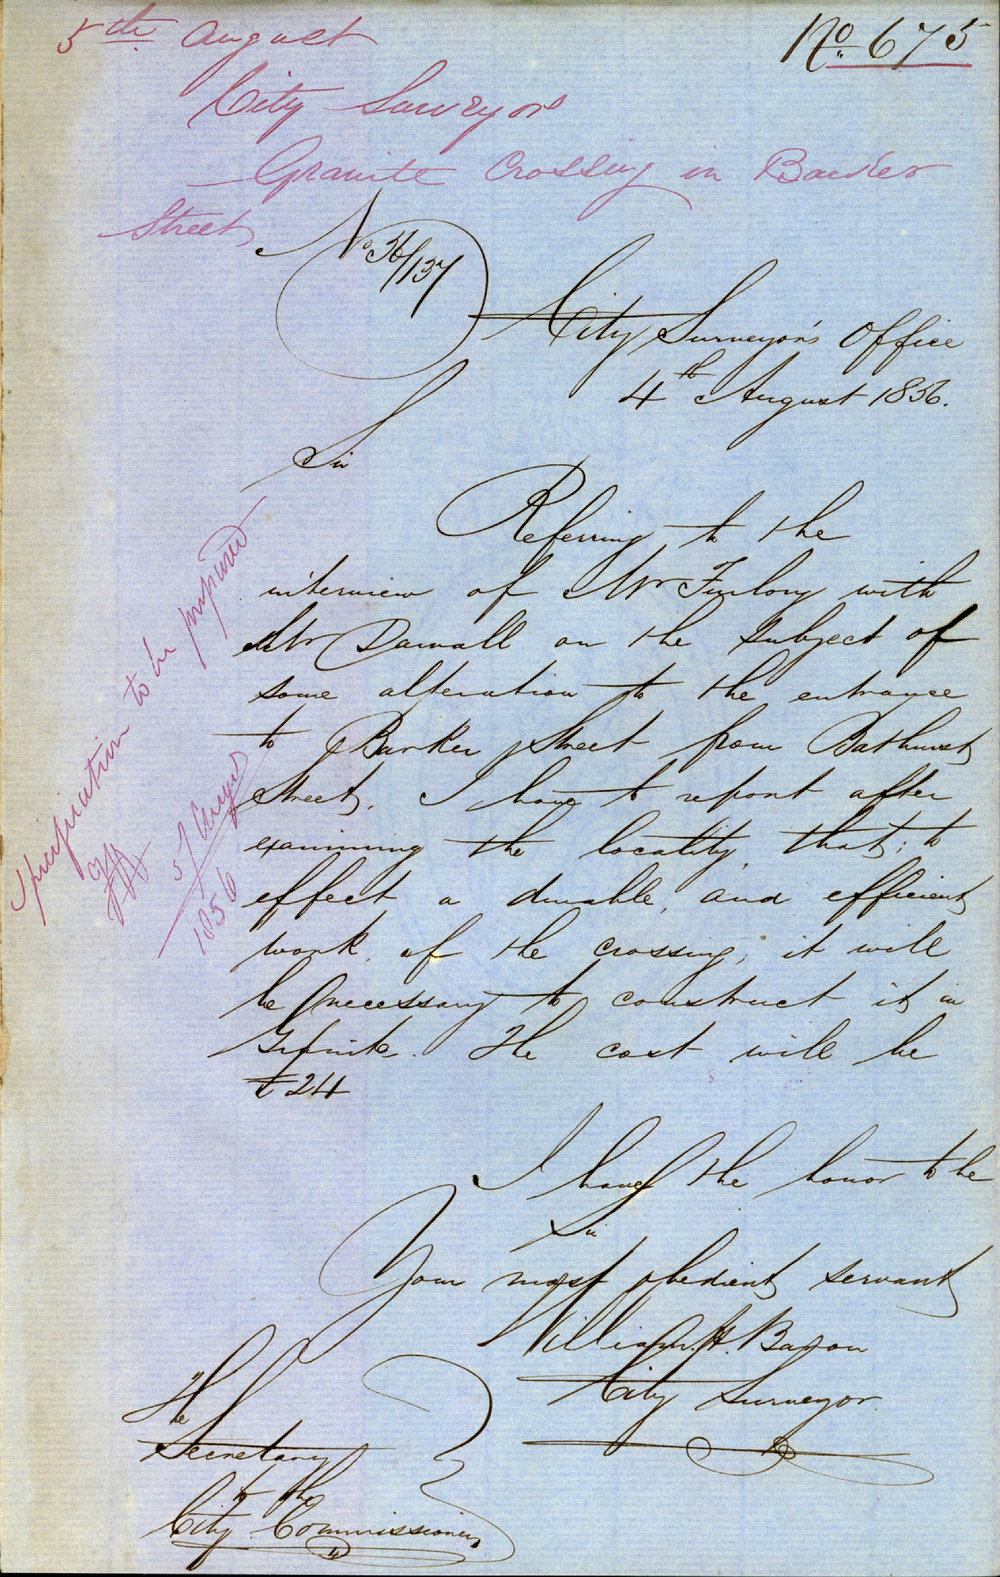 5th August
No 675
City Surveyor
Granite Crossing in Barker
Street
No 56/137
City Surveyor's Office
4th August 1856.
Sir
Referring to the
interview of Mr Furlong with
Mr Darvall on the subject of
some alteration to the entrance
to Barker Street from Bathurst
Street. I have to report after
examining the locality, that; to
effect a durable, and efficient
work, of the crossing, it will
be necessary to construct it in
Granite. The cost will be
£24
specification to be prepared
5/ Augt
1856
I have the honor to be
Sir
Your most obedient servant
William H. Baron
City Surveyor.
The
Secretary
to the
City Commissioners